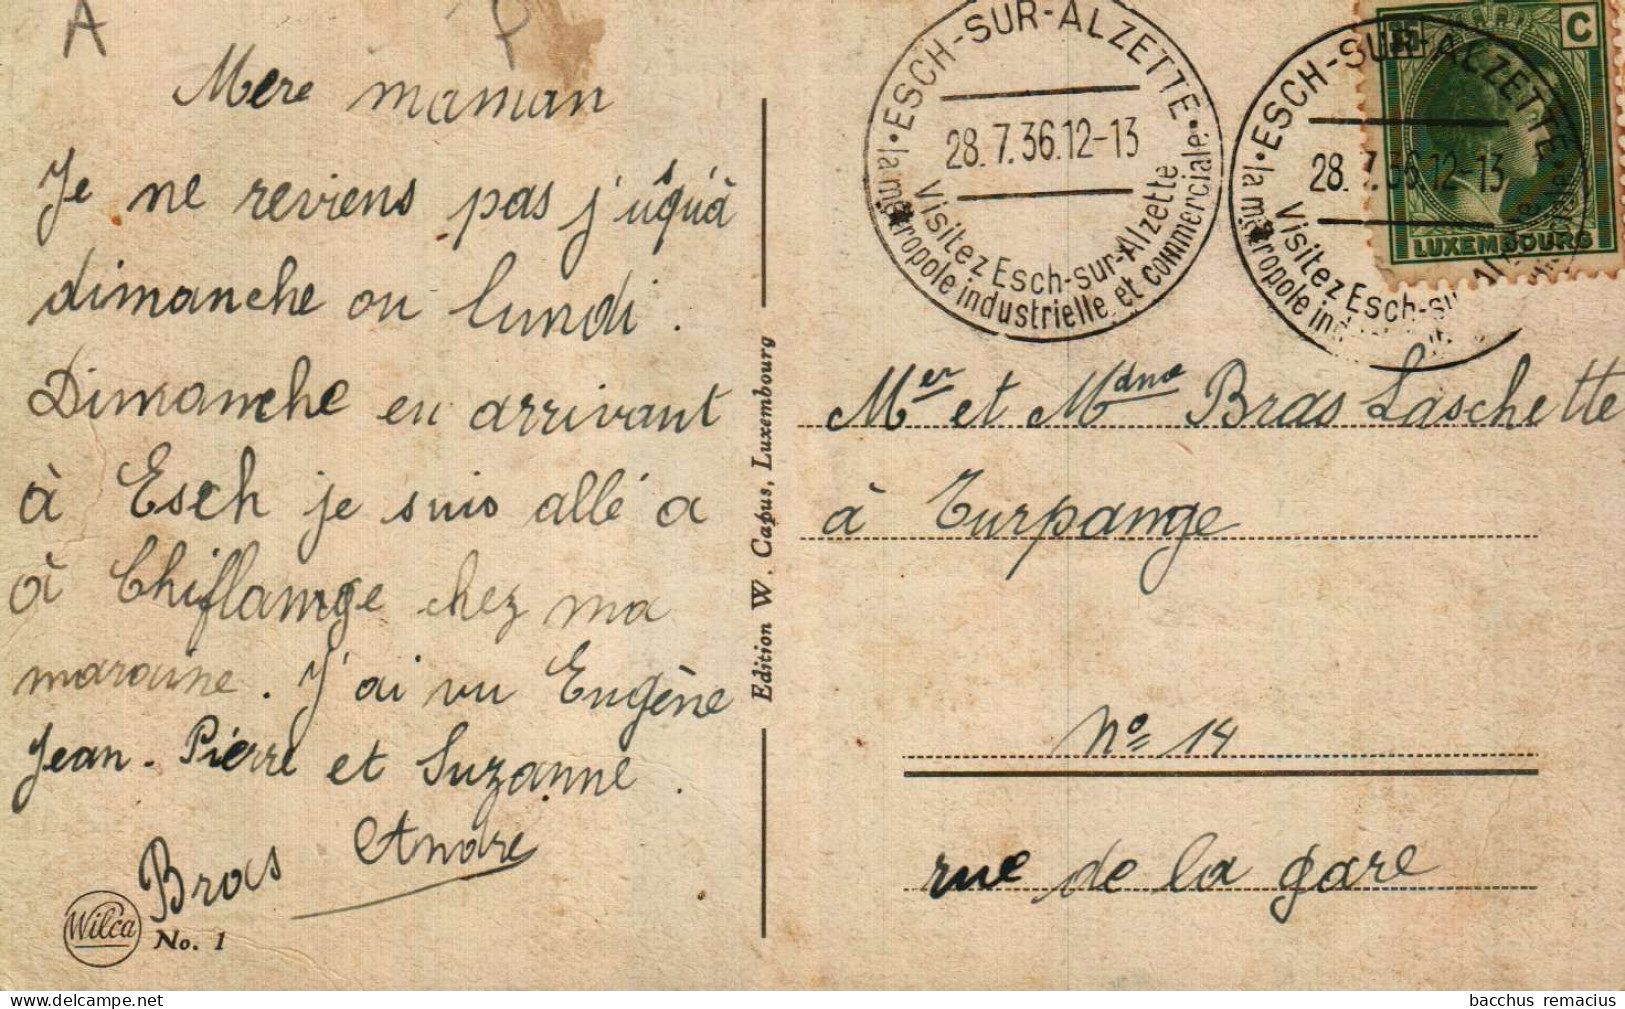 A
P
Mere maman
Je ne reviens pas j'usqu'à
dimanche ou lundi.
Dimanche en arrivant
à Esch je suis allé a
à Chiflange chez ma
maraine. J'ai vu Eugène
Jean-Pierre et Suzanne.
Bras André
Wilca
No. 1
Edition W. Capus, Luxembourg
ESCH-SUR-ALZETTE
28.7.36.12-13
Visitez Esch-sur-Alzette
la métropole industrielle et commerciale
ESCH-SUR-ALZETTE
28.7.36.12-13
Visitez Esch-sur-Alzette
la métropole ind
C
LUXEMBOURG
Mer et Mdme Bras Laschette
à Turpange
No 14
rue de la gare
bacchus remacius